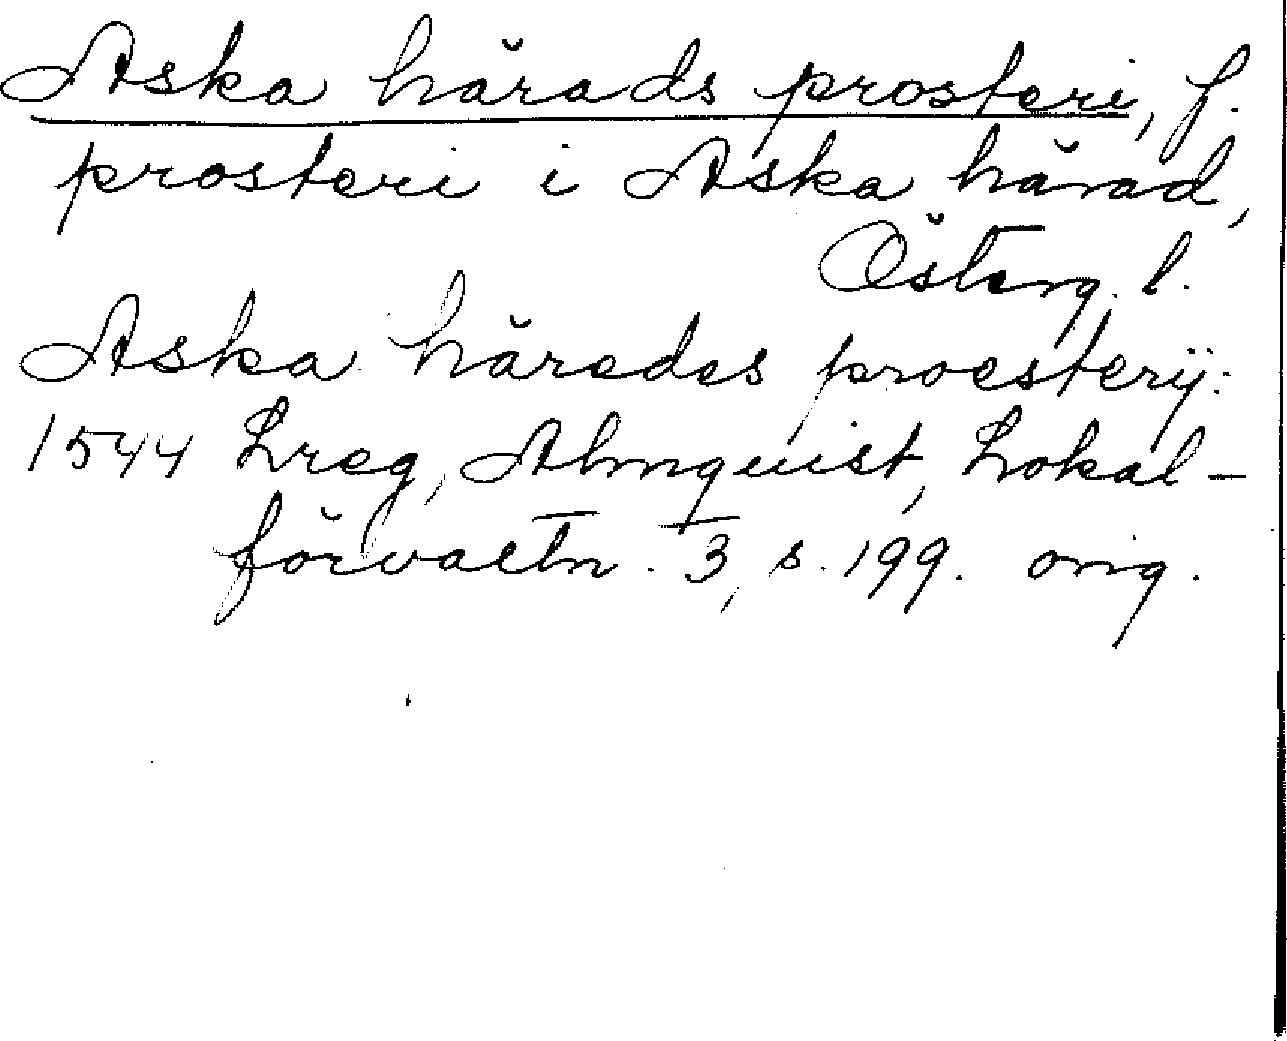 Aska härads prosteri, f.
prosteri i Aska härad,
Österg. l.
Aska häredes proesterÿ:
1544 Lreg, Almquist, Lokal-
förvaltn. 3, s. 199. orig.